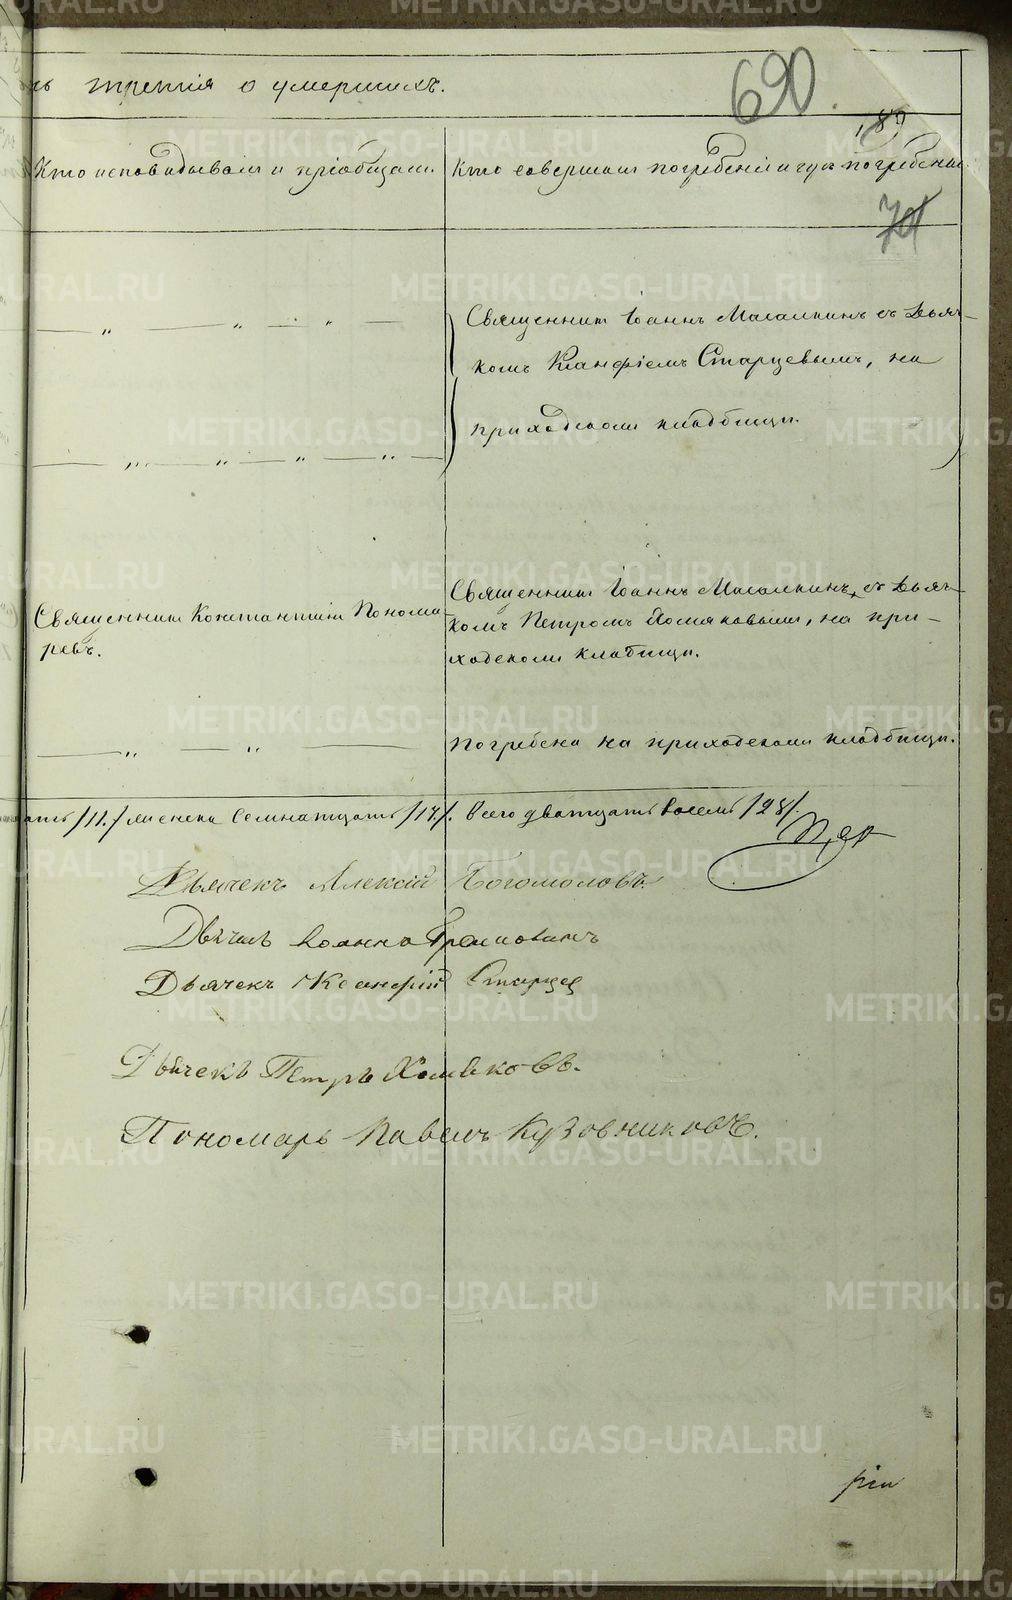 ть третія о умершихъ.
690
Кто исповѣдывалъ и пріобщалъ.
Кто совершалъ погребеніе и гдѣ погребены.
Священникъ Іоаннъ Масалкинъ съ Дьяч-
комъ Ксанфіемъ Старцевымъ, на
приходскомъ кладбищѣ.
Священникъ Константинъ Понома-
ревъ.
Священникъ Іоаннъ Масалкинъ, съ Дьяч-
комъ Петромъ Хомяковымъ, на при-
ходскомъ кладбищѣ.
Погребена на приходскомъ кладбищѣ.
/11./ женска Семнатцать /17/. Всего дватцать восемь /28/.
Дьячекъ Алексій Богомоловъ.
Дьячекъ Ксанфій Старцев
Дьячекъ Петръ Хомяковъ.
Пономарь Павелъ Кузовниковъ.
METRIKI.GASO-URAL.RU